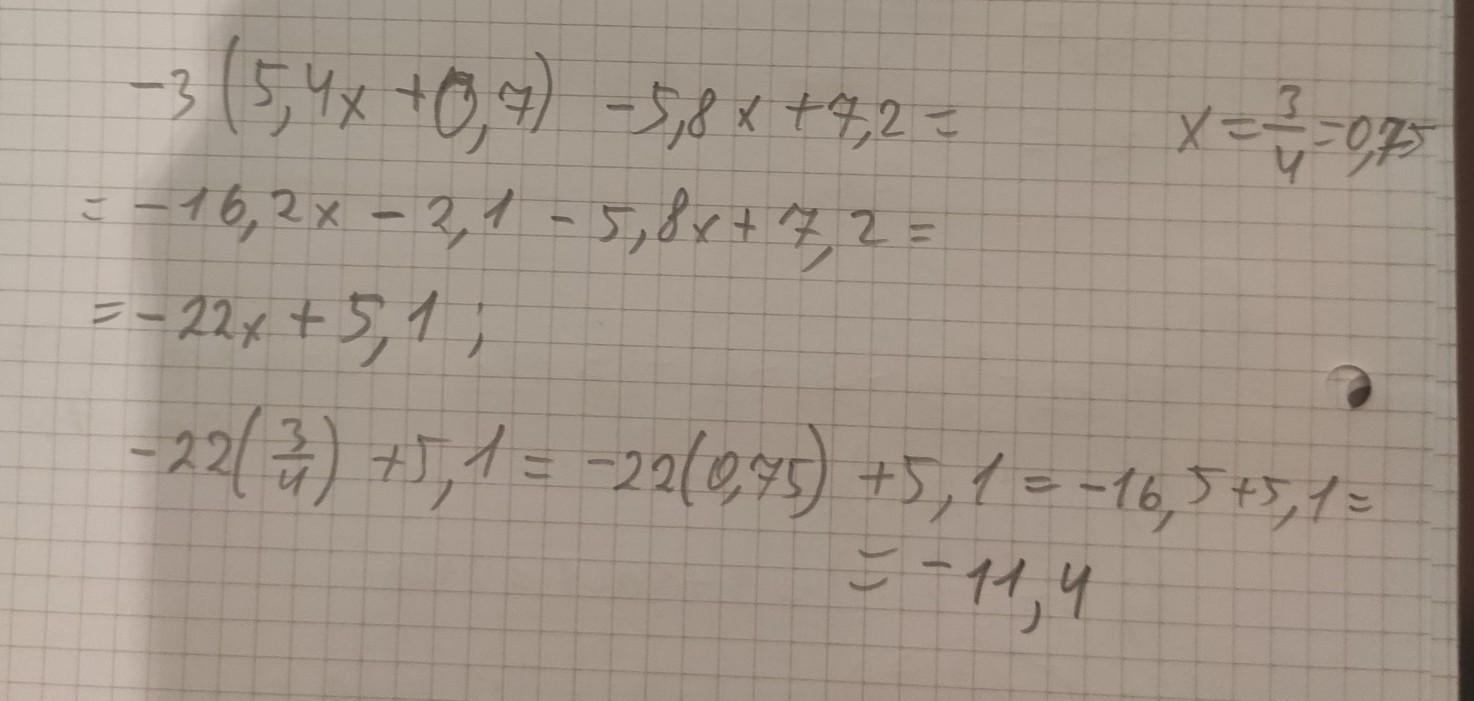 -3(5,4x+0,7) -5,8x+7,2= x=3/4=0,75
=-16,2x-2,1-5,8x+7,2=
=-22x+5,1;
-22(3/4)+5,1=-22(0,75)+5,1=-16,5+5,1=
=-11,4